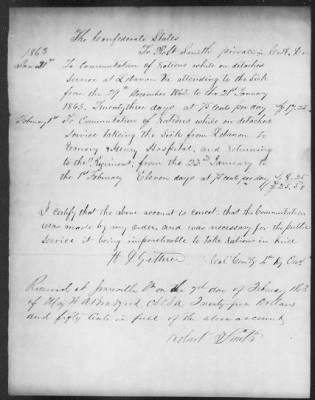 The Confederate States
1863 To Robt Smith private in Co. D.
Jany 21st To Commutation of Rations while on detached
Service at Lebanon Va attending to the Sick
from the 29th December 1862 to the 21st January
1863. Twenty three days at 75 Cents per day $17.25
February 1st To Commutation of Rations while on detached
Service takeing the Sick from Lebanon to
Emory & Henry Hospital, and returning
to the Regiment, from the 22nd January to
the 1st February Eleven days at 75 cents per day $8.25
$25.50
I certify that the above account is correct. that the Commutation
was made by my orders and was necessary for the public
service it being impracticable to take Rations in kind
Comdg 4th Ky Cav
Received at Jonesville Va on the 7th day of February 1863
of Maj Twenty five Dollars
and fifty Cents in full of the above account
Robert Smith